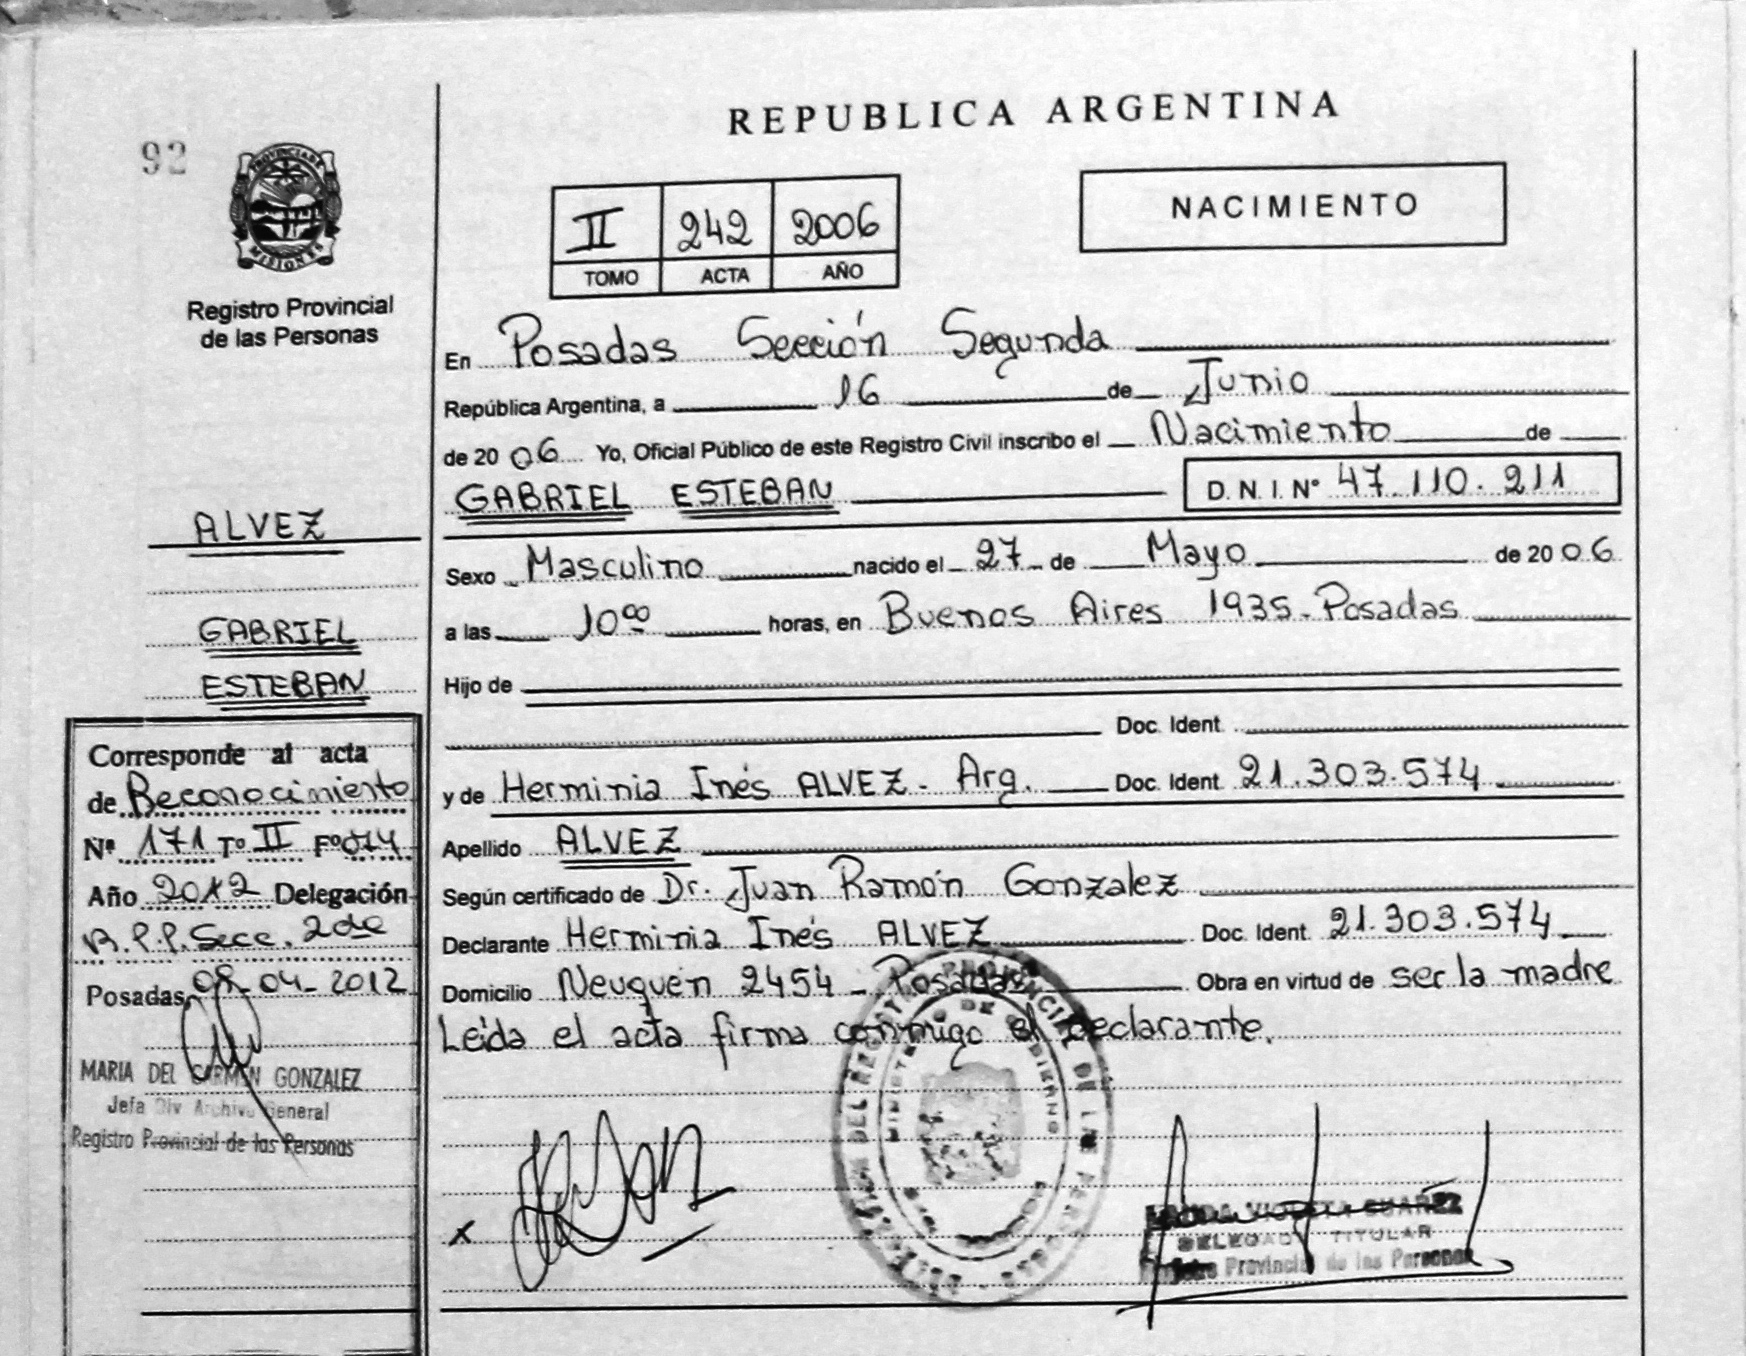 92
PROVINCIA DE
MISIONES
Registro Provincial
de las Personas
ALVEZ
GABRIEL
ESTEBAN
Corresponde al acta
de Reconocimiento
Nº 171 Tº II Fº 074
Año 2012 Delegación
R.P.P. Secc. 2da
Posadas, 09-04-2012
MARIA DEL CARMEN GONZALEZ
Jefa Div Archivo General
Registro Provincial de las Personas
REPUBLICA ARGENTINA
II 242 2006
TOMO ACTA AÑO
NACIMIENTO
En Posadas Sección Segunda
República Argentina, a 16 de Junio
de 2006 Yo, Oficial Público de este Registro Civil inscribo el Nacimiento de
GABRIEL ESTEBAN D.N.I. Nº 47.110.211
Sexo Masculino nacido el 27 de Mayo de 2006
a las 10 00 horas, en Buenos Aires 1935- Posadas
Hijo de
Doc. Ident.
y de Herminia Inés ALVEZ- Arg. Doc. Ident. 21.303.574
Apellido ALVEZ
Según certificado de Dr. Juan Ramón Gonzalez
Declarante Herminia Inés ALVEZ Doc. Ident. 21.303.574
Domicilio Neuquén 2454 - Posadas Obra en virtud de ser la madre
Leída el acta firma conmigo el declarante.
x
SUAREZ
TITULAR
Provincial de las Personas